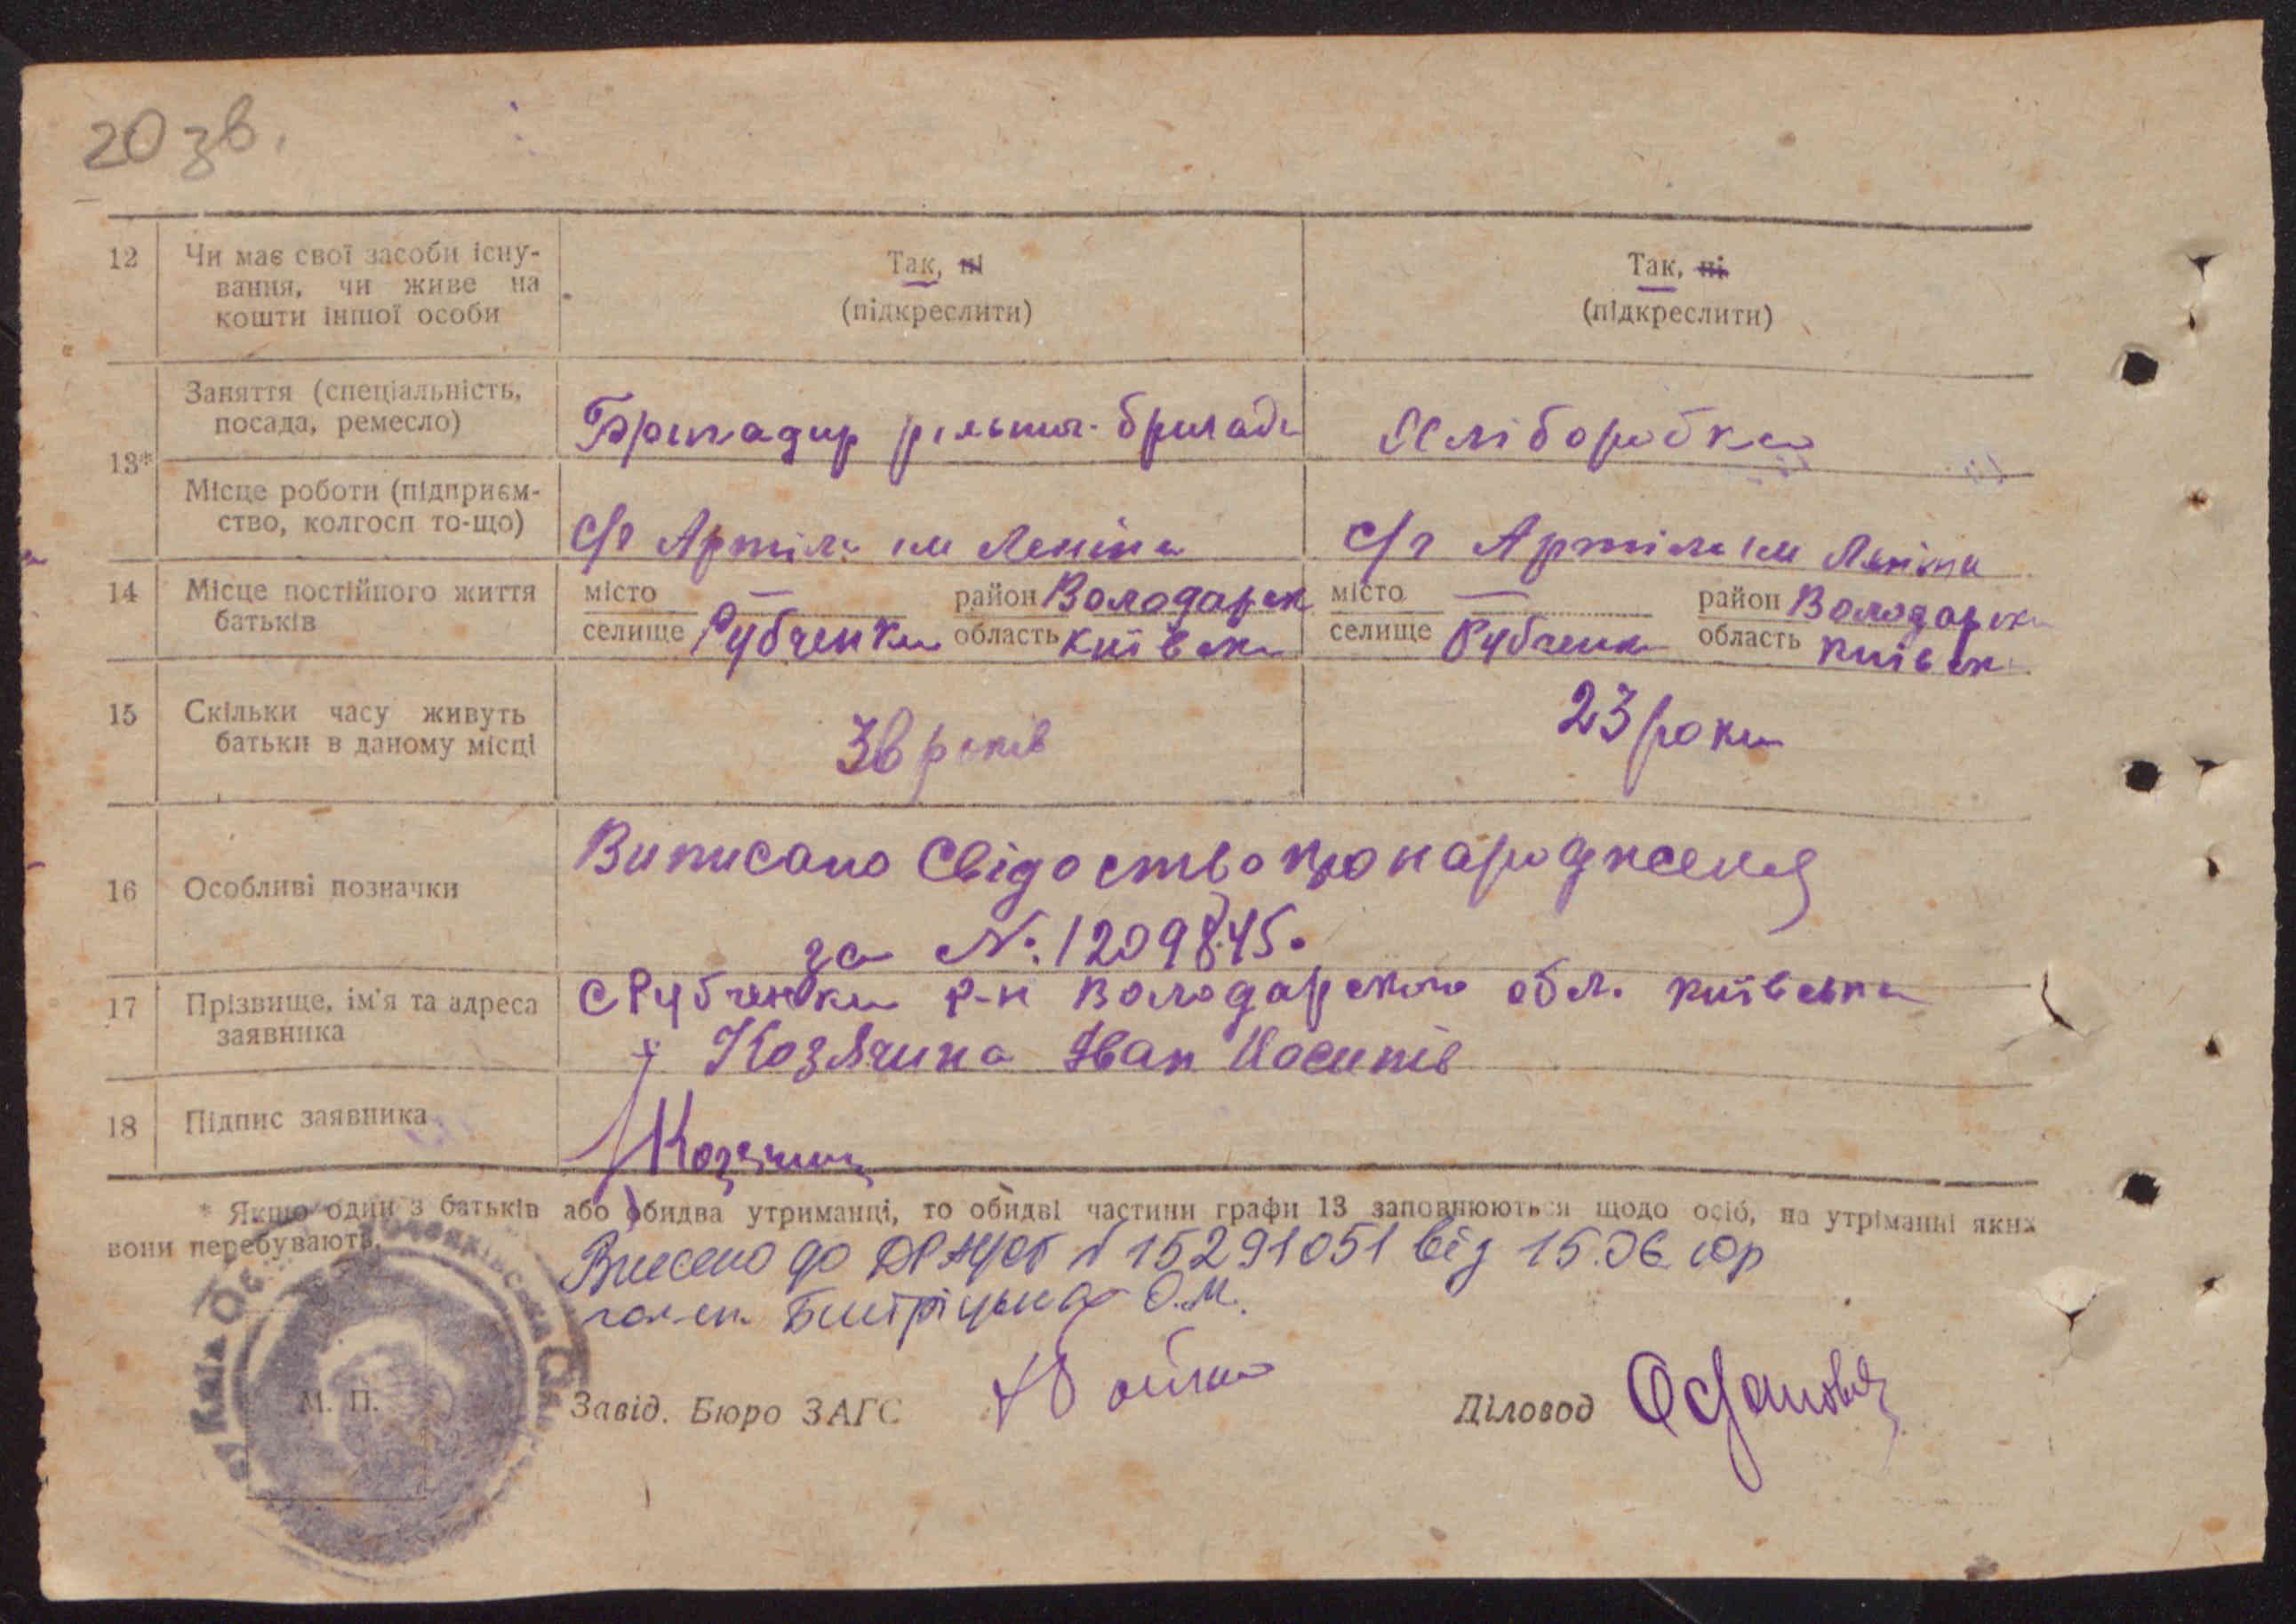 20 зв.
12 Чи має свої засоби існу- Так, ні Так, ні
вання, чи живе на
кошти іншої особи (підкреслити) (підкреслити)
Заняття (спеціальність,
посада, ремесло) Бригадир рільнич. бригади Хліборобка
13*
Місце роботи (підприєм-
ство, колгосп то-що) С/г Артіль ім Леніна С/г Артіль ім Леніна
14 Місце постійного життя місто — район Володарськ місто — район Володарськ
батьків селище Рубченки область Київськ селище Рубченки область Київськ
15 Скільки часу живуть
батьки в даному місці 36 років 23 роки
Виписано Свідоство про народження
16 Особливі позначки
за №: 1209845.
17 Прізвище, ім'я та адреса С Рубченки р-н Володарського обл. Київська
заявника Козячина Іван Йосипів
18 Підпис заявника Козячин
* Якщо один з батьків або обидва утриманці, то обидві частини графи 13 заповнюються щодо осіб, на утріманні яких
вони перебувають.
Внесено до № 15291051 від 15.06. 10р
О.М.
М. П. Завід. Бюро ЗАГС Діловод